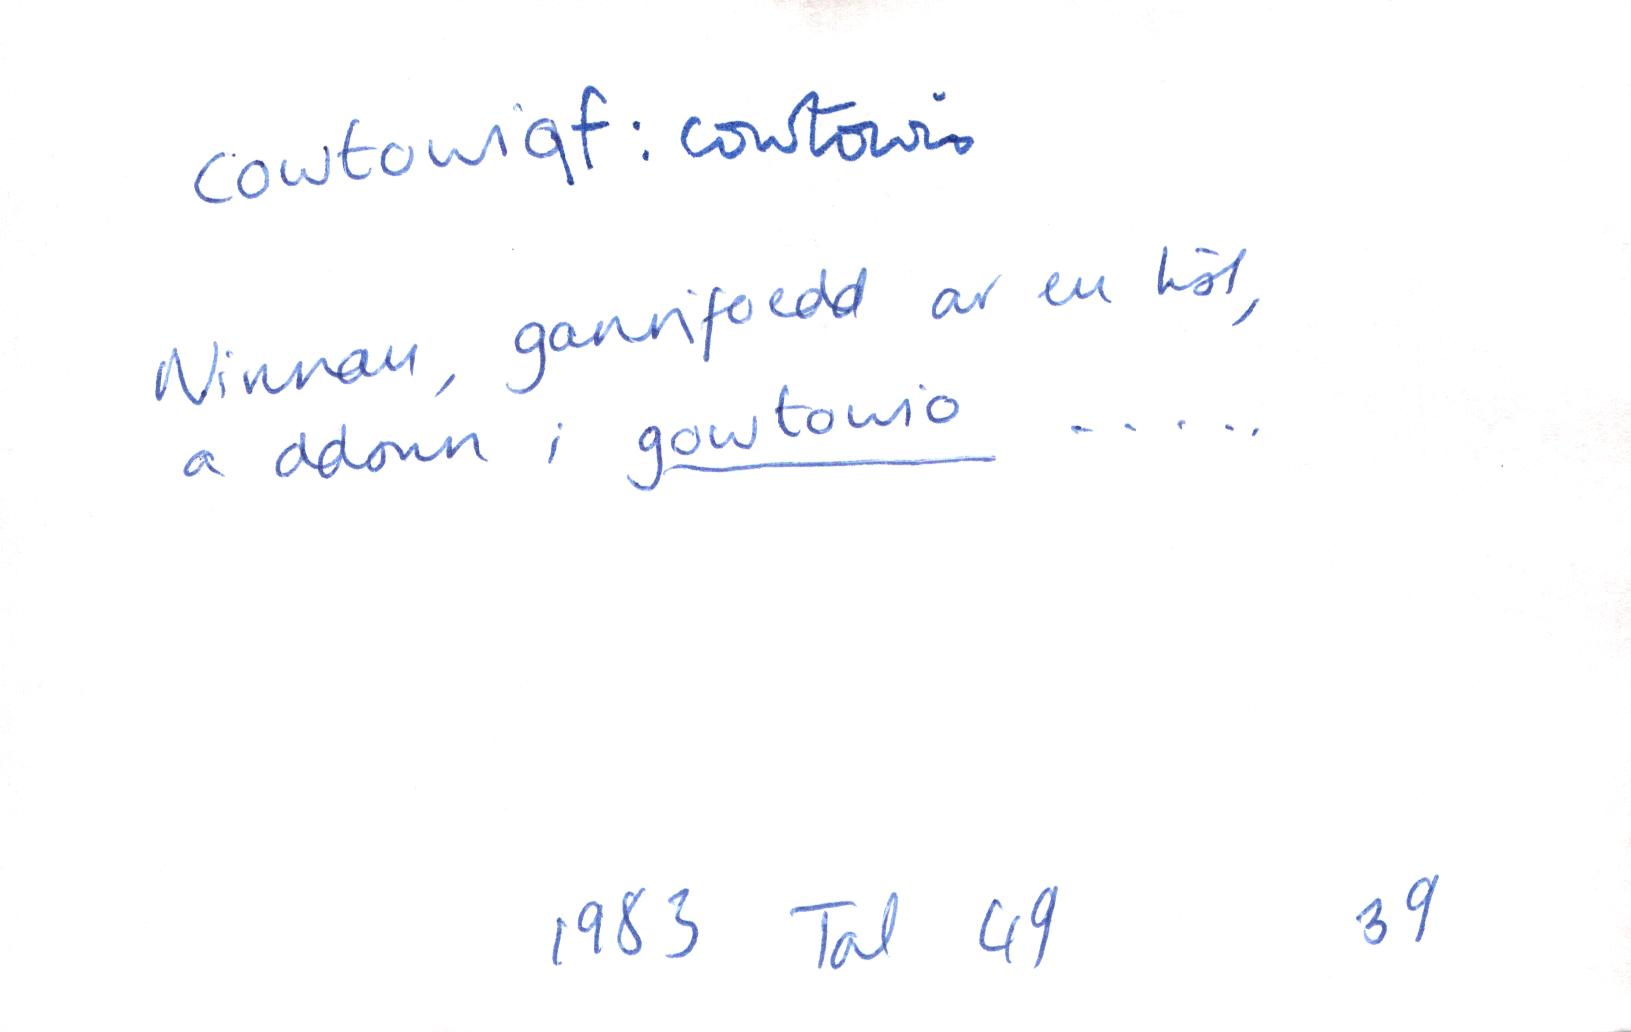 cowtowiaf: cowtowio
Ninnau, ganrifoedd ar eu hôl,
a ddown i gowtowio .....
1983 Tal 49 39